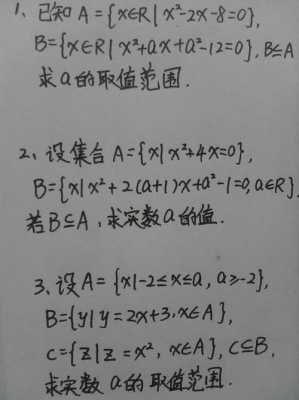 1、已知A={x∈R|x²-2x-8=0},
B={x∈R|x²+ax+a²-12=0},B⊆A
求a的取值范围.
2、设集合A={x|x²+4x=0},
B={x|x²+2(a+1)x+a²-1=0,a∈R}
若B⊆A,求实数a的值.
3、设A={x|-2≤x≤a,a≥-2},
B={y|y=2x+3,x∈A},
C={z|z=x²,x∈A},C⊆B,
求实数a的取值范围.